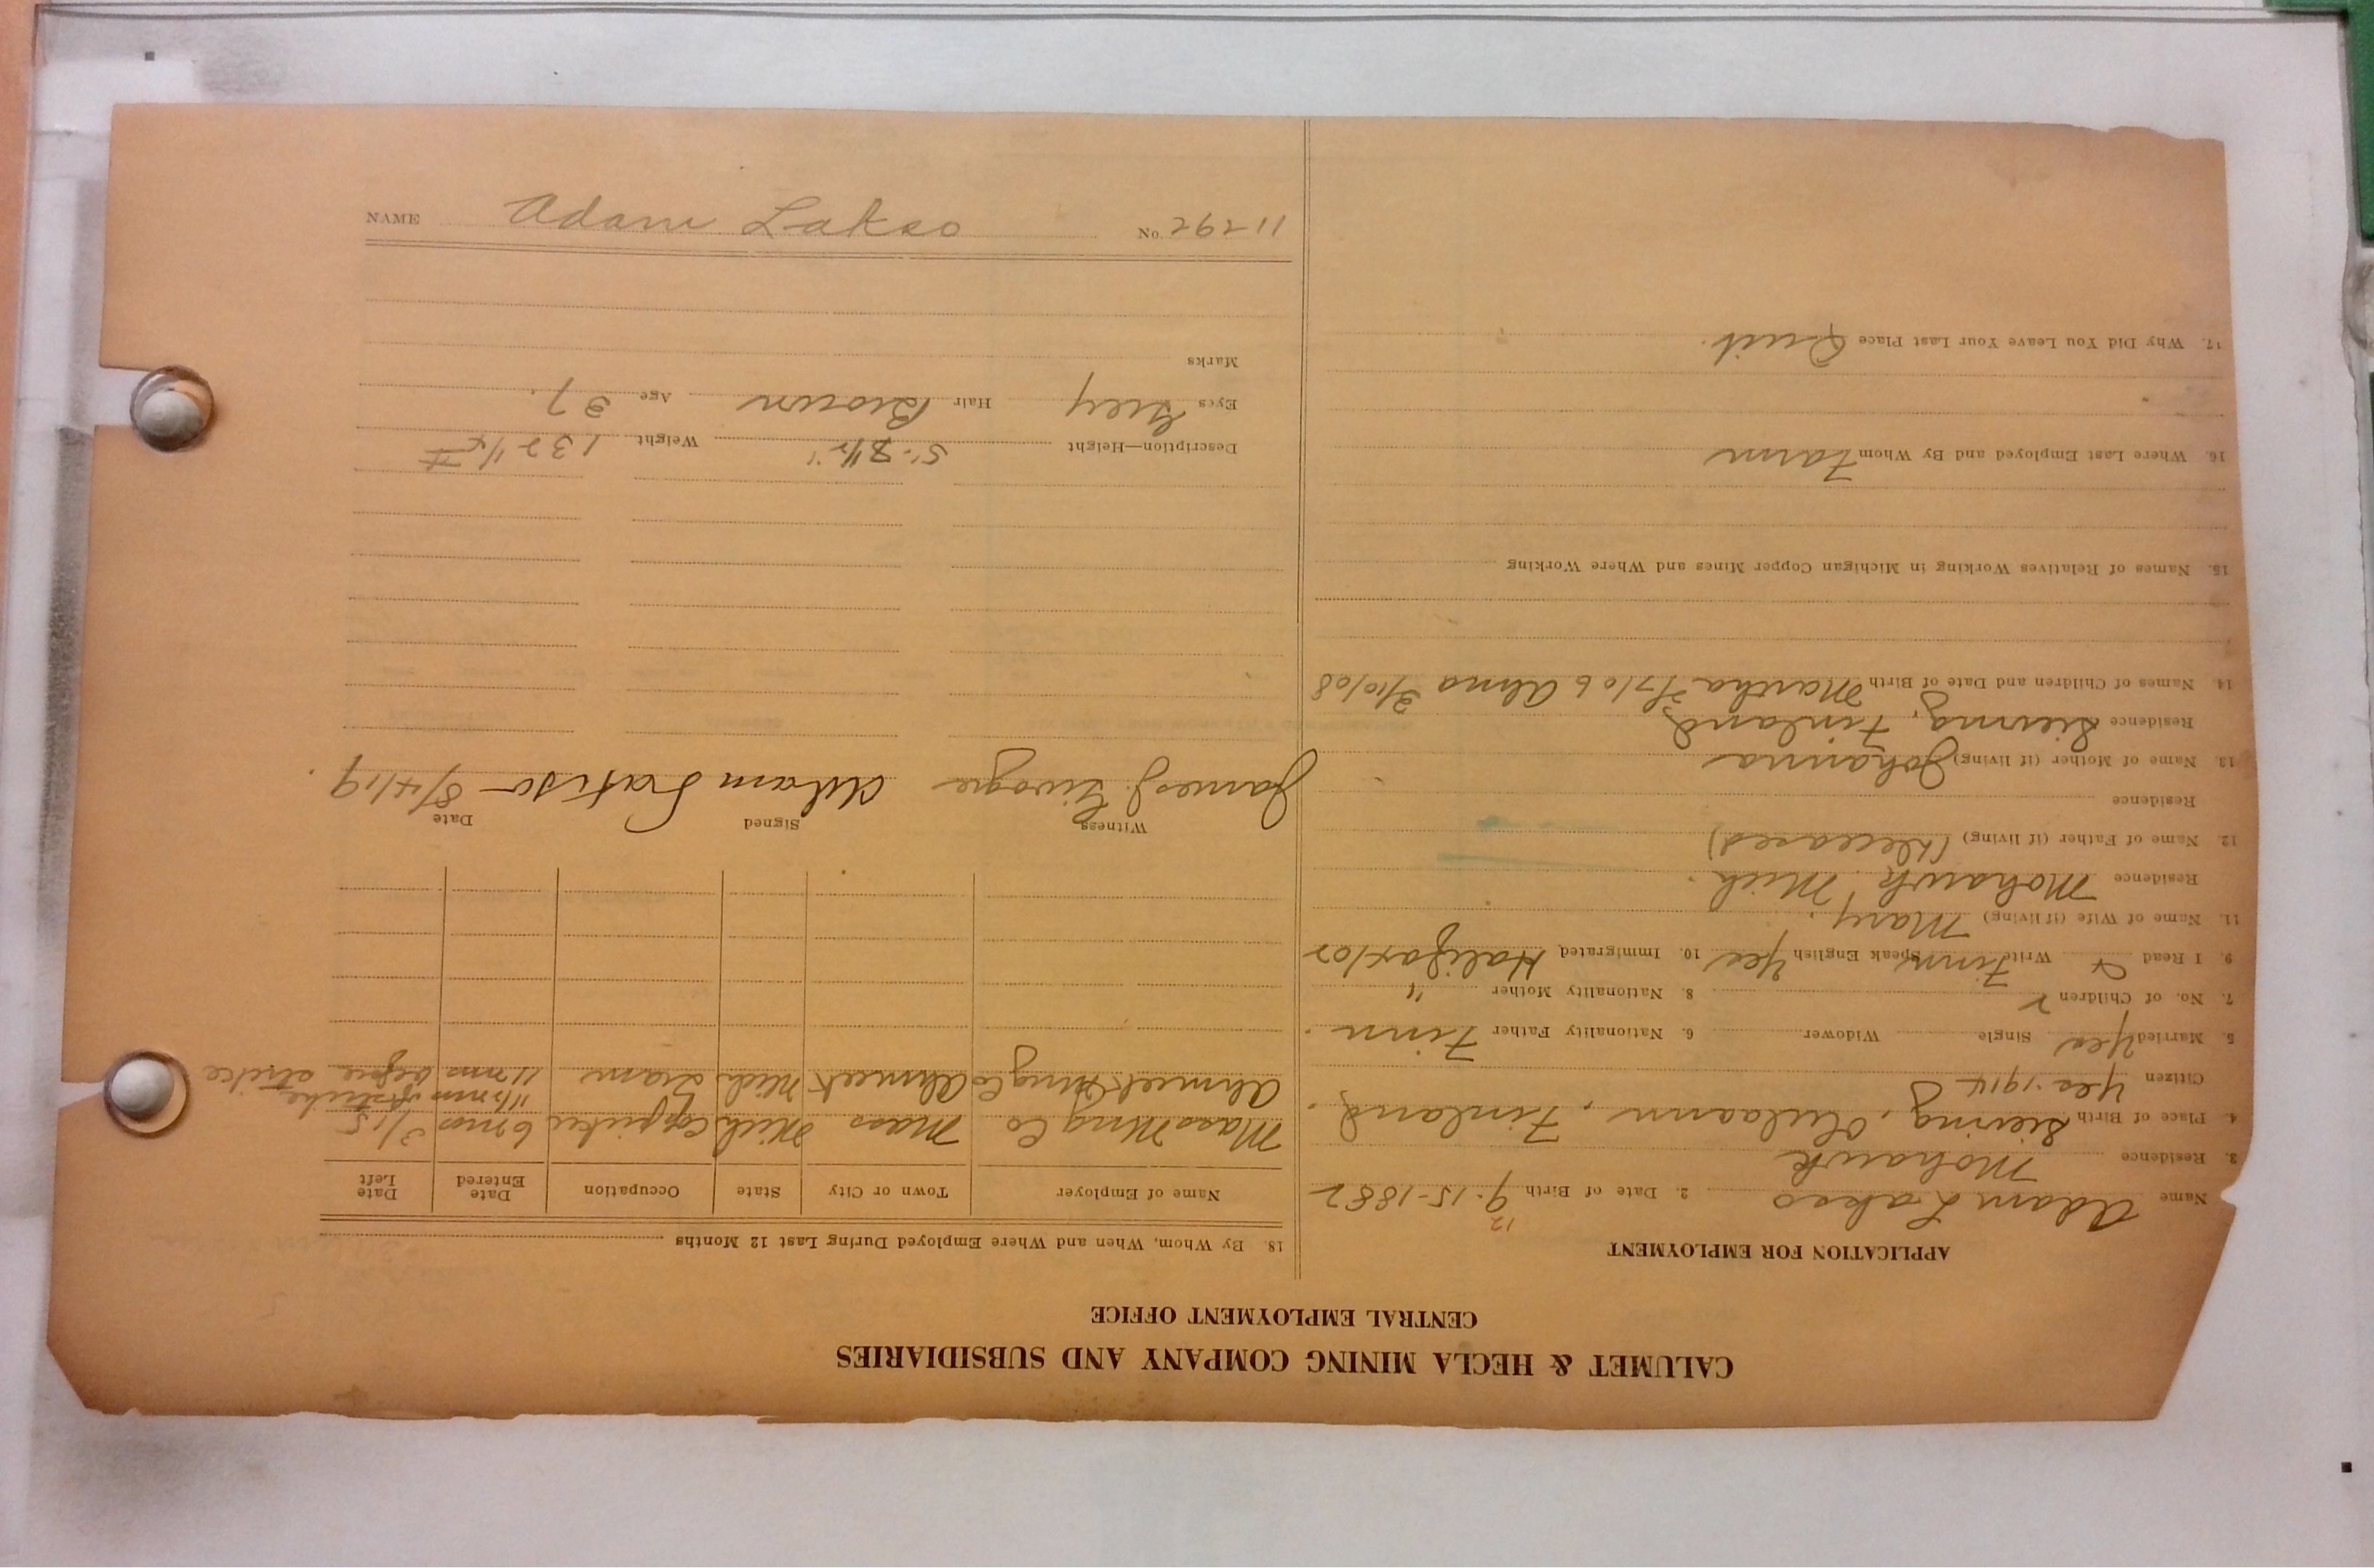 CALUMET & HECLA MINING COMPANY AND SUBSIDIARIES
CENTRAL EMPLOYMENT OFFICE
APPLICATION FOR EMPLOYMENT
Name Adam Lakso 2. Date of Birth 9-15-1882
12
3. Residence Mohawk
4. Place of Birth Sieving, Oulaann, Finland.
Citizen Yes. 1914
5. Married Yes Single Widower 6. Nationality Father Finn.
7. No. of Children 2 8. Nationality Mother "
9. I Read & Write Finn Speak English Yes 10. Immigrated Halifax/02
11. Name of Wife (if living) Mary.
Residence Mohawk Mich.
12. Name of Father (if living) (Deceased)
Residence
13. Name of Mother (if living) Johanna
Residence Sieving, Finland
14. Names of Children and Date of Birth Martha 7/06 Alma 3/10/08
15. Names of Relatives Working in Michigan Copper Mines and Where Working
16. Where Last Employed and By Whom Farm
17. Why Did You Leave Your Last Place Quit.
18. By Whom, When and Where Employed During Last 12 Months
Name of Employer Town or City State Occupation Date Entered Date Left
Mass Mng Co Mass Mich 6 mos 3/15
Ahmeek Mng Co Ahmeek Mich Tram 11 mos before strike
Witness Signed Date
James J. Adam Lakso 8/4/19.
Description—Height 5'-8 1/2" Weight 132 1/2 #
Eyes Grey Hair Brown Age 37.
Marks
NAME Adam Lakso No. 11292